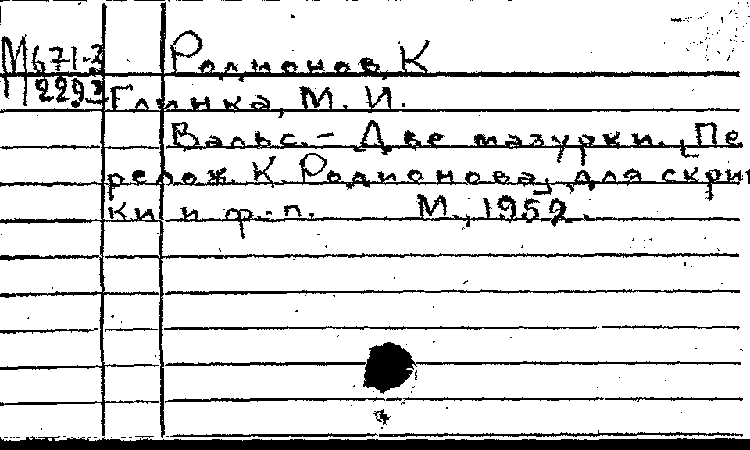 М671-3 Родионов, К
2293
Глинка, М. И.
Вальс. – Две мазурки. [Пе
релож. К. Родионова] для скрип
ки и ф.-п. М., 1952.